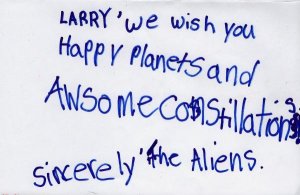 LARRY, we wish you
Happy Planets and
AWSOME CONStillations
sincerely, The Aliens.